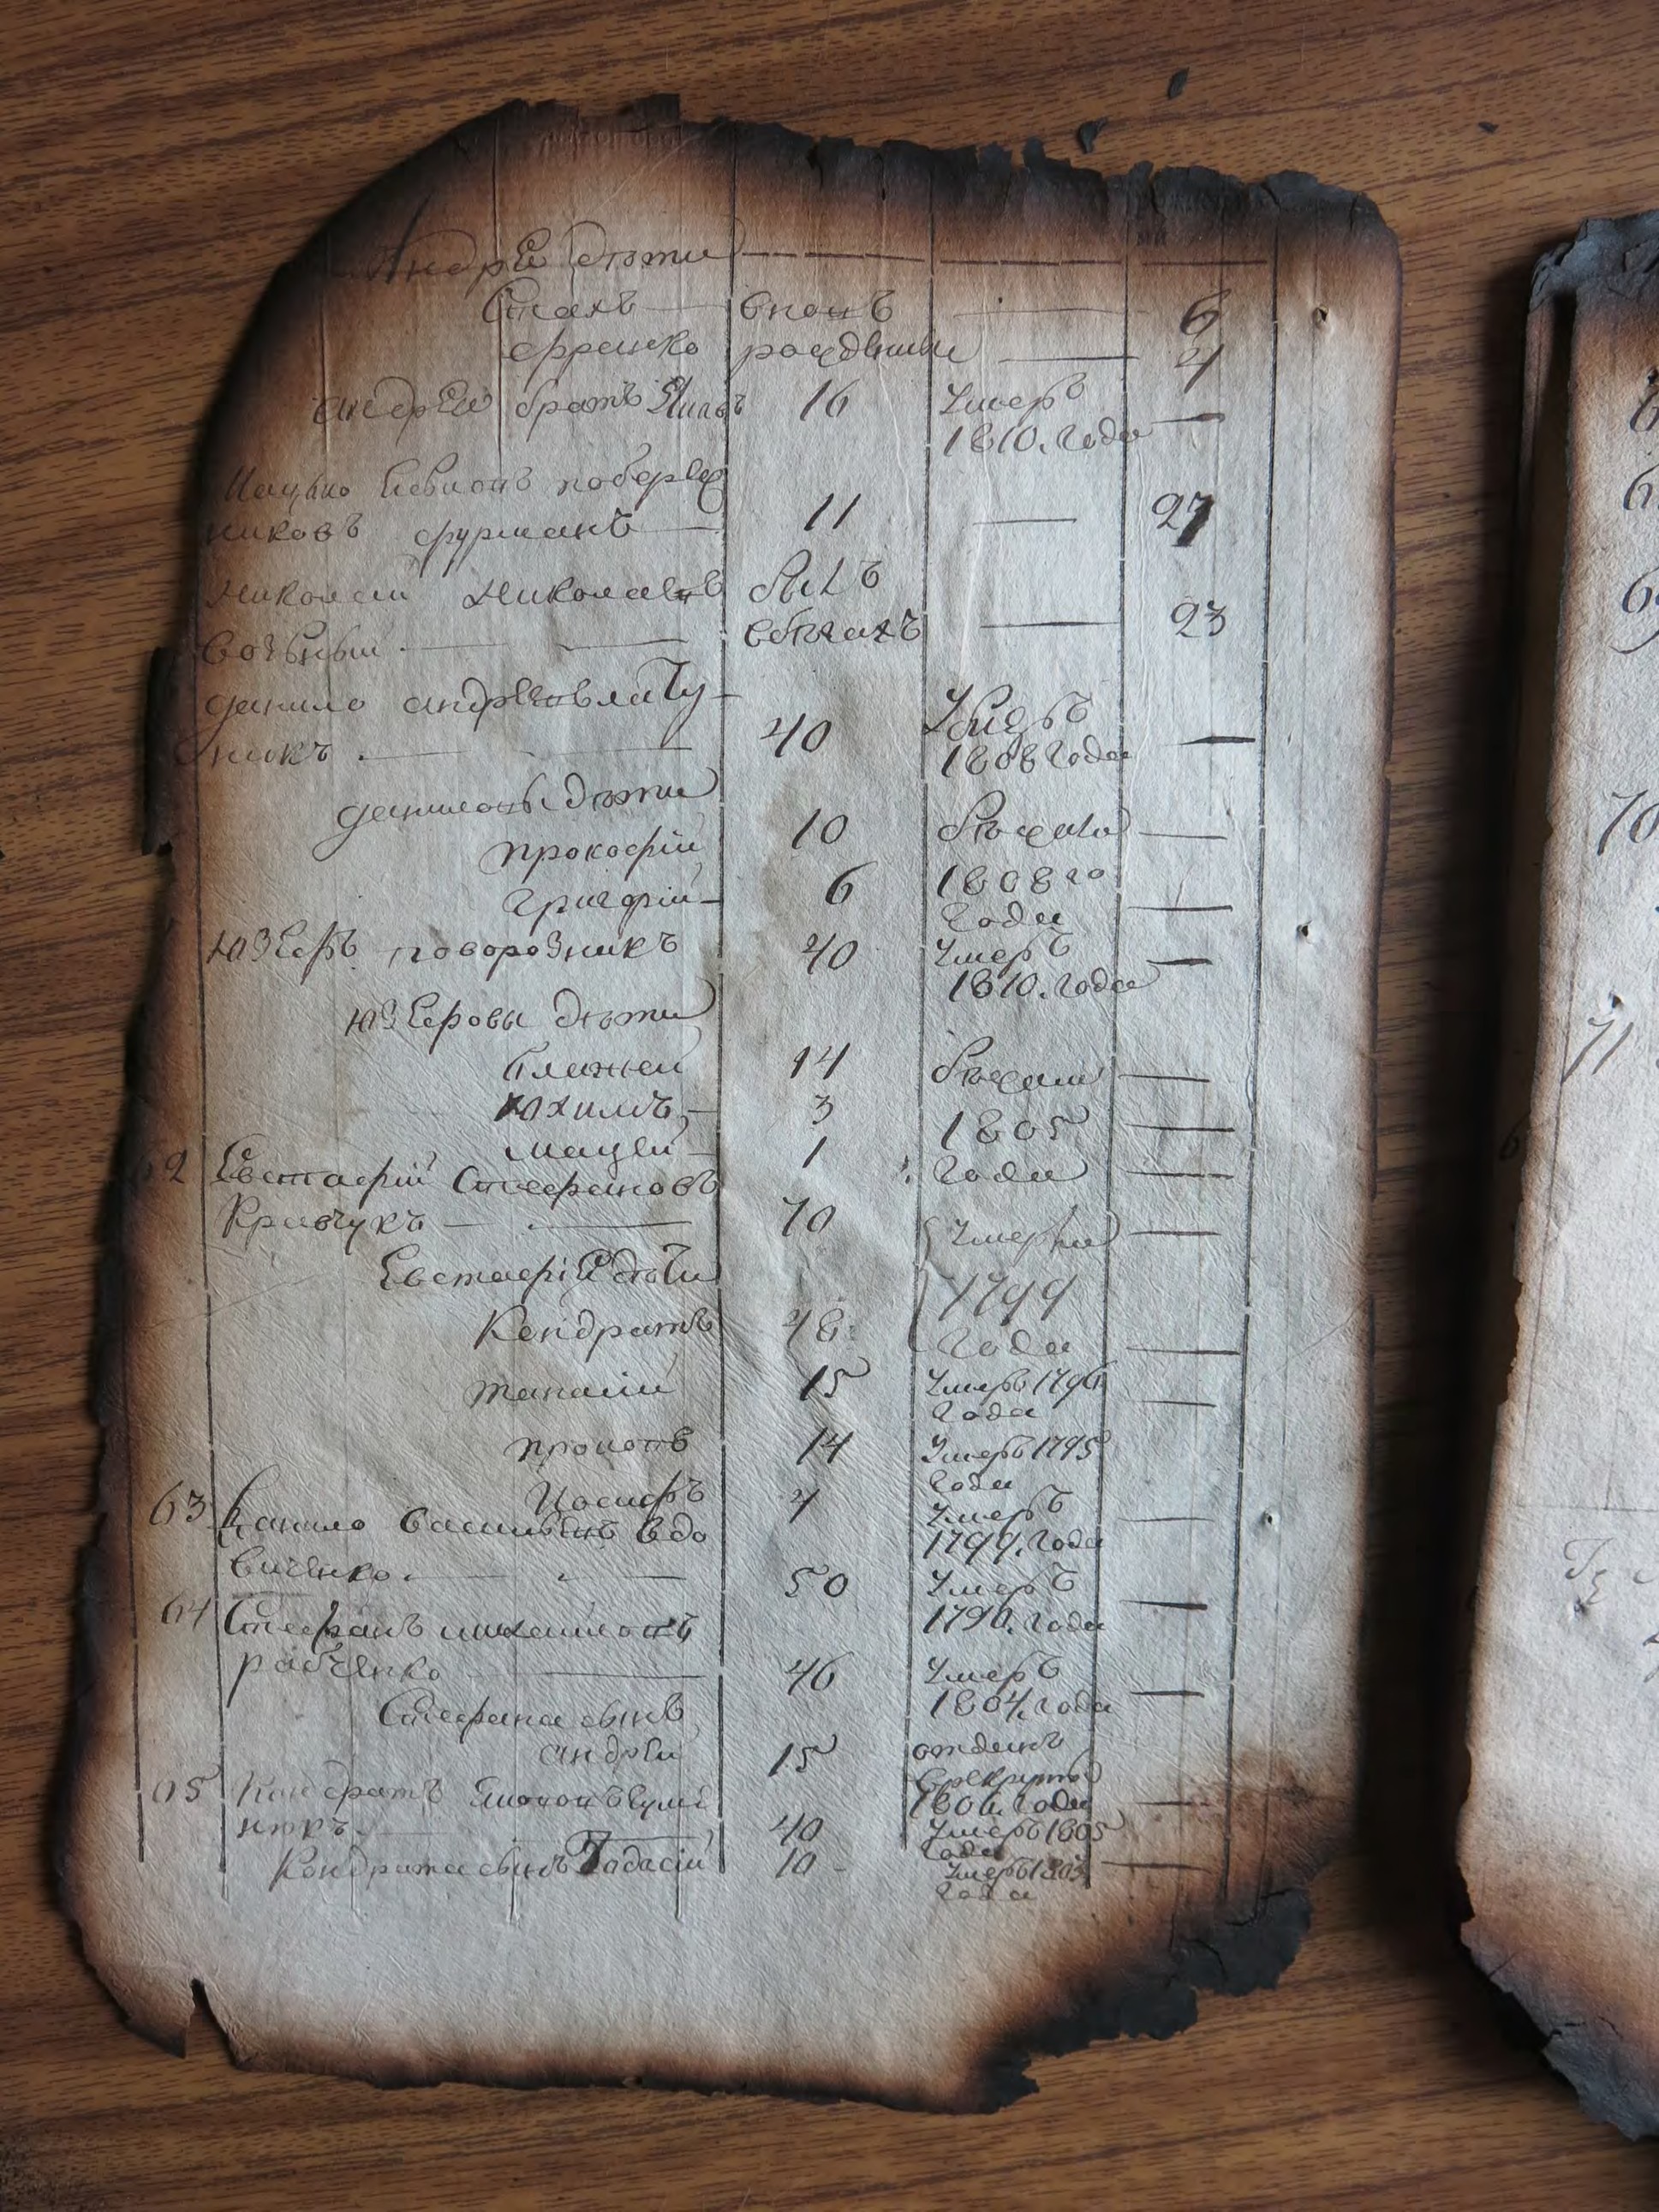 Андрея дѣти
Стахъ вновь 6
Франко рожденны 4
Андрея братъ 16 умеръ
1810. года
Яцько побереж
никовъ фурманъ 11 27
Николай Николаевъ былъ
возьный вбѣгахъ 23
Данило Андреевъ
никъ 40 умеръ
1808 года
Даниловы дѣти
Прокофій 10 бѣжали
Григорій 6 1808го
года
Юзефъ поворозникъ 40 умеръ
1810. года
Юзефовы дѣти
Блажей 14 бѣжали
Юхимъ 3 1805
Мацей 1 года
2 Евстафій Стефановъ
Кравчукъ 70 умерли
1799
Евстафія дѣти
Кондратъ 48 года
15 умеръ 1796
года
Прокопъ 14 умеръ 1795
года
Иосифъ 4 умеръ
1799. года
63 Данило Васильевъ вдо
виченко 50 умеръ
1796. года
64 Стефанъ Михайловъ
рабченко 46 умеръ
1804. года
Стефана сынъ
Андрей 15 отданъ
в рекруты
1806. года
65 Кондратъ
никъ 40 умеръ 1805
года
Кондрата сынъ 10 умеръ 1803
года
6
6
69
70
71